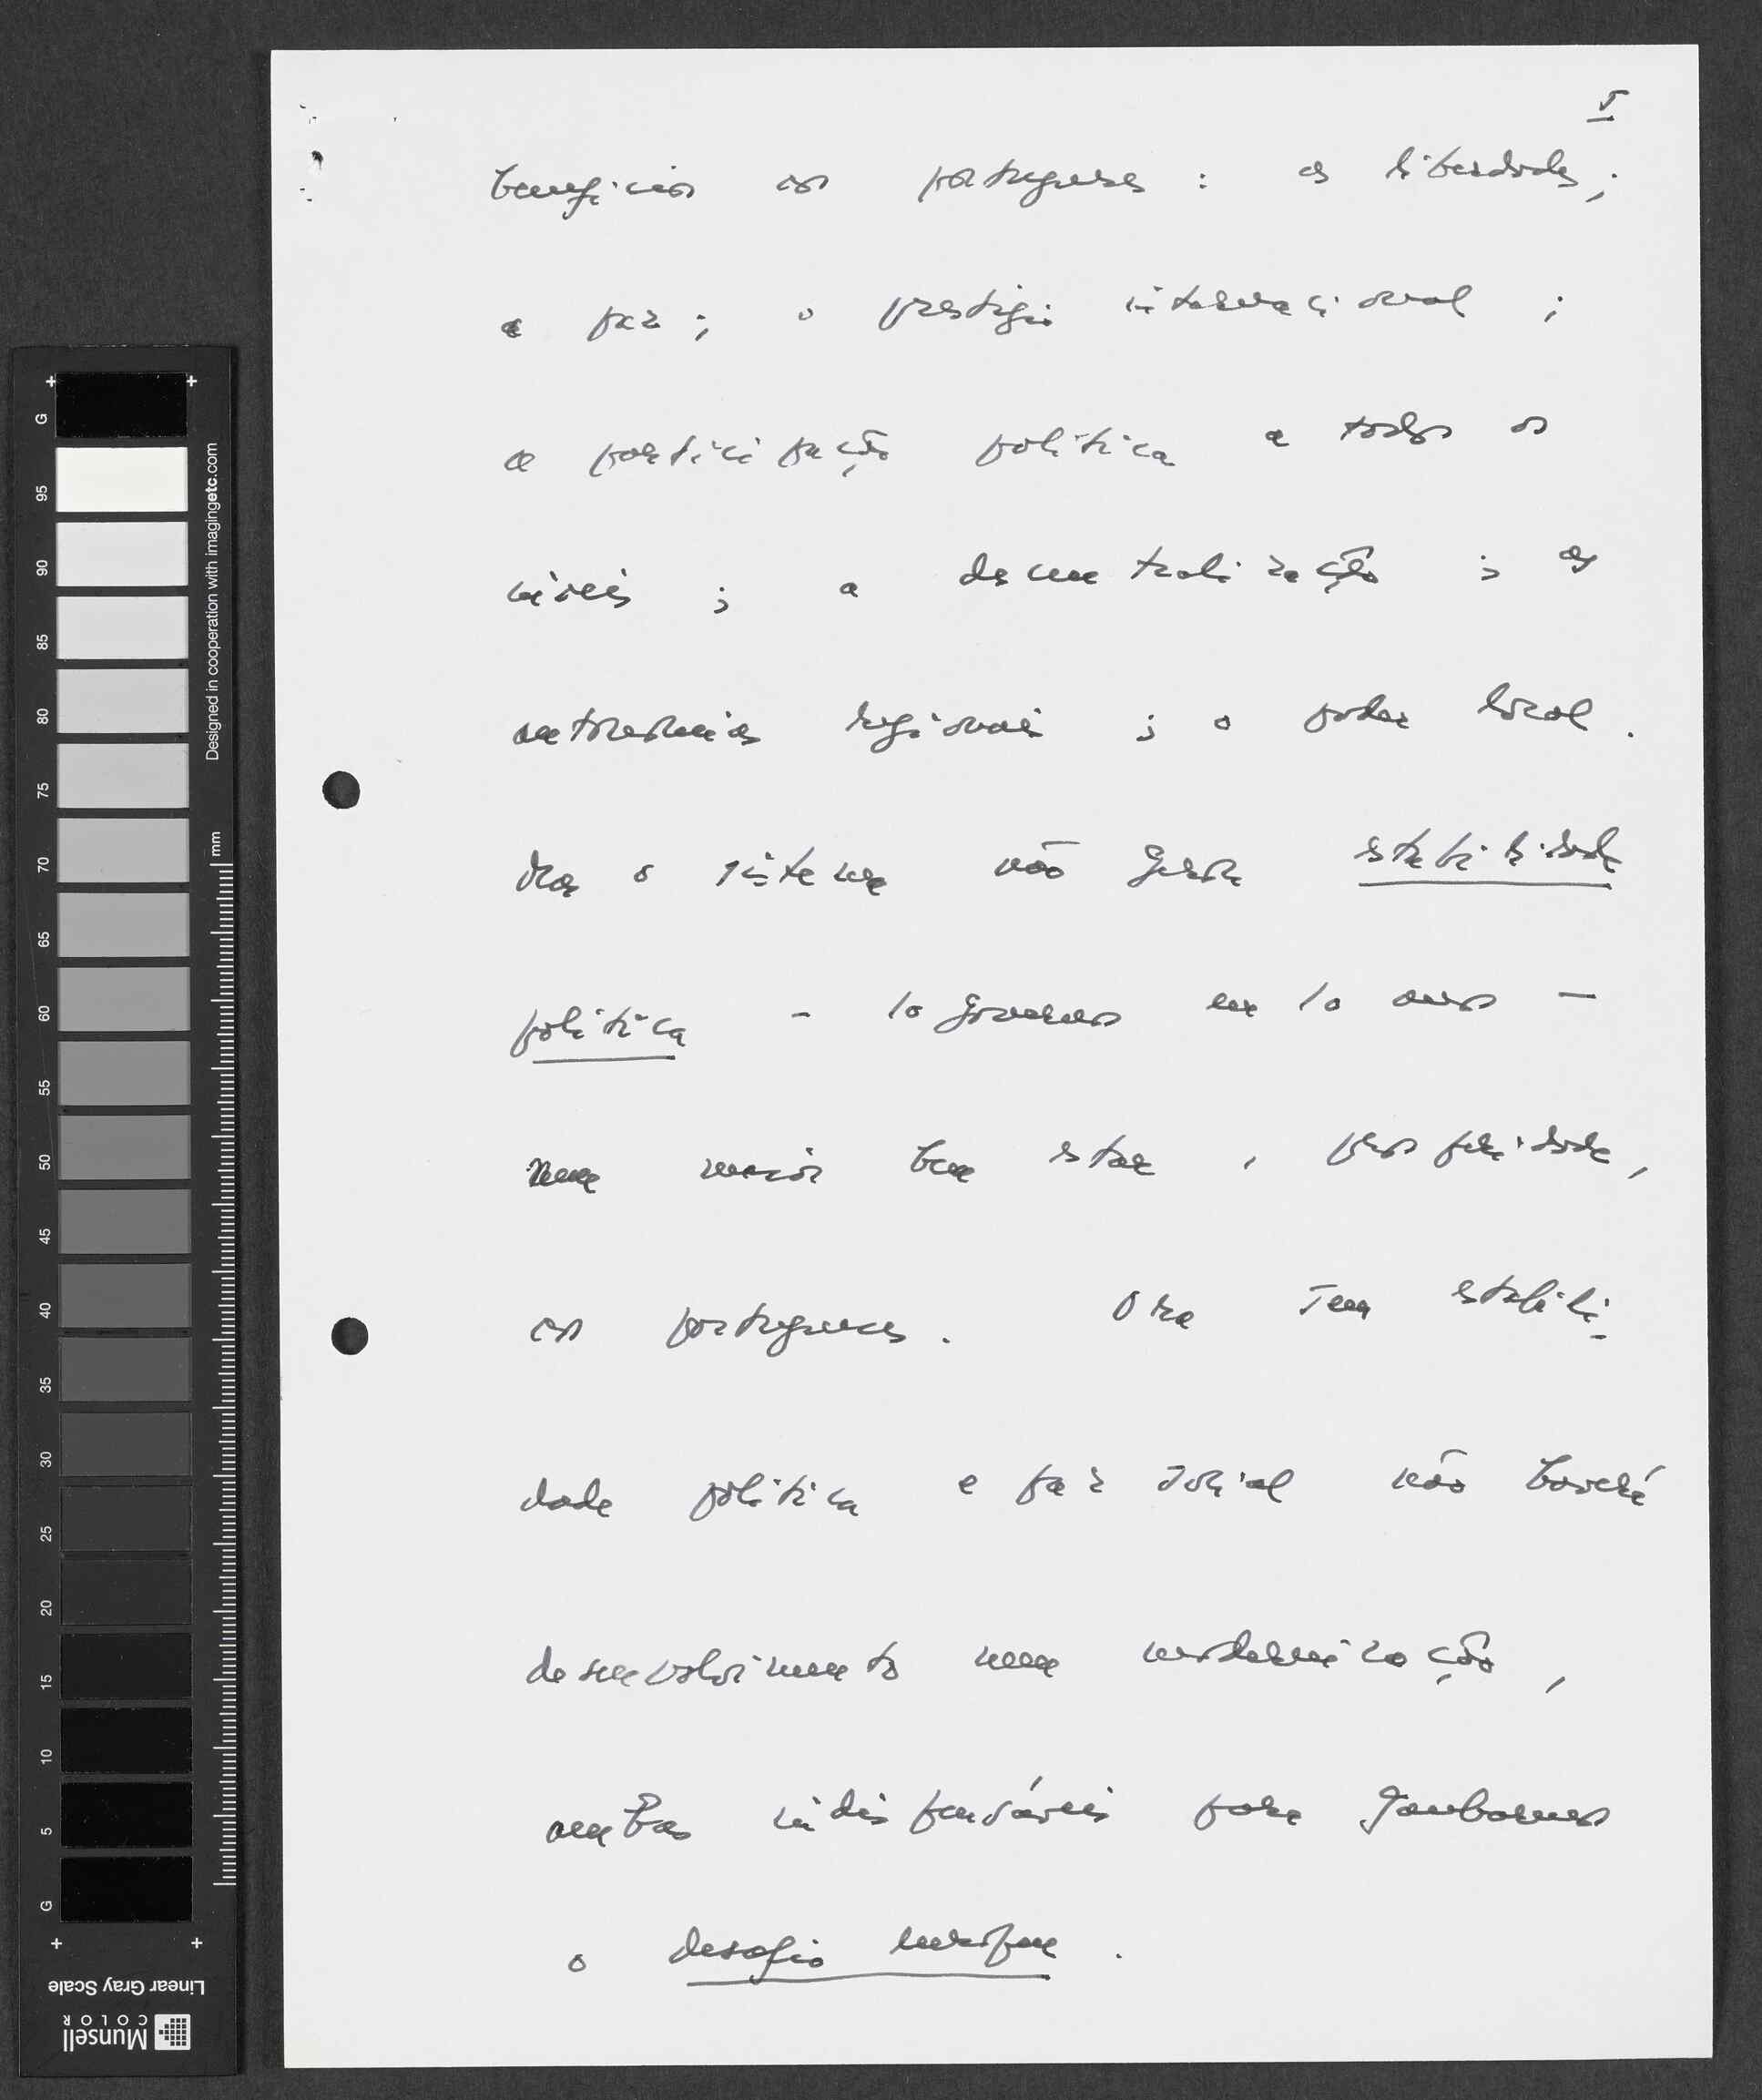 5
benefícios aos portugueses : as liberdades ;
a paz ; o prestígio internacional ;
a participação política a todos os
níveis ; a descentralização ; as
autonomias regionais ; o poder local .
Mas o sistema não gerou estabilidade
política - 10 governos em 10 anos -
nem maior bem estar , prosperidade ,
aos portugueses . Ora sem estabili-
dade política e paz social não haverá
desenvolvimento nem modernização ,
ambas indispensáveis para ganharmos
o desafio europeu .
G
95
90
85
80
75
70
65
60
55
50
45
40
35
30
25
20
15
10
5
G
Designed in cooperation with imagingetc.com
mm
Linear Gray Scale
Munsell
COLOR